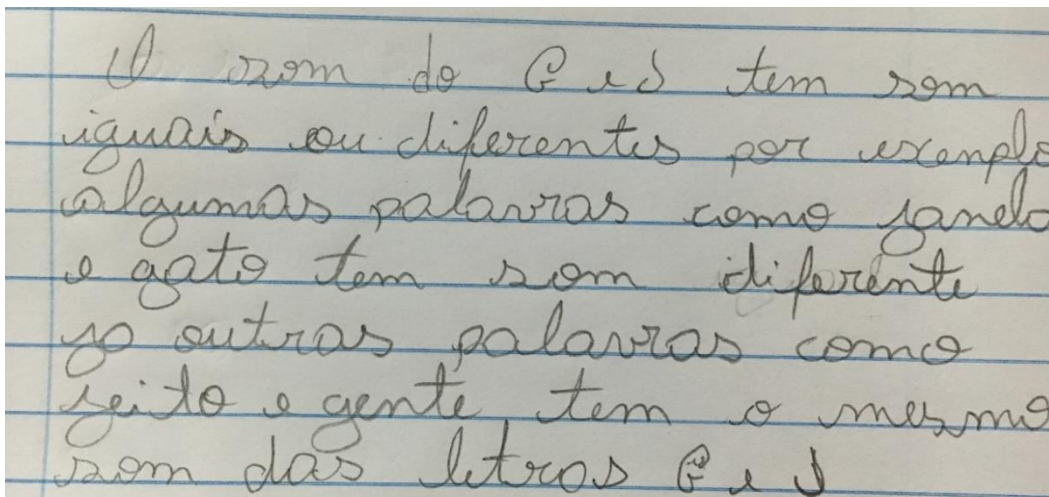 O som do G e J tem som
iguais ou diferentes por exemplo
algumas palavras como janela
e gato tem som diferente
ja outras palavras como
jeito e gente tem o mesmo
som das letras G e J